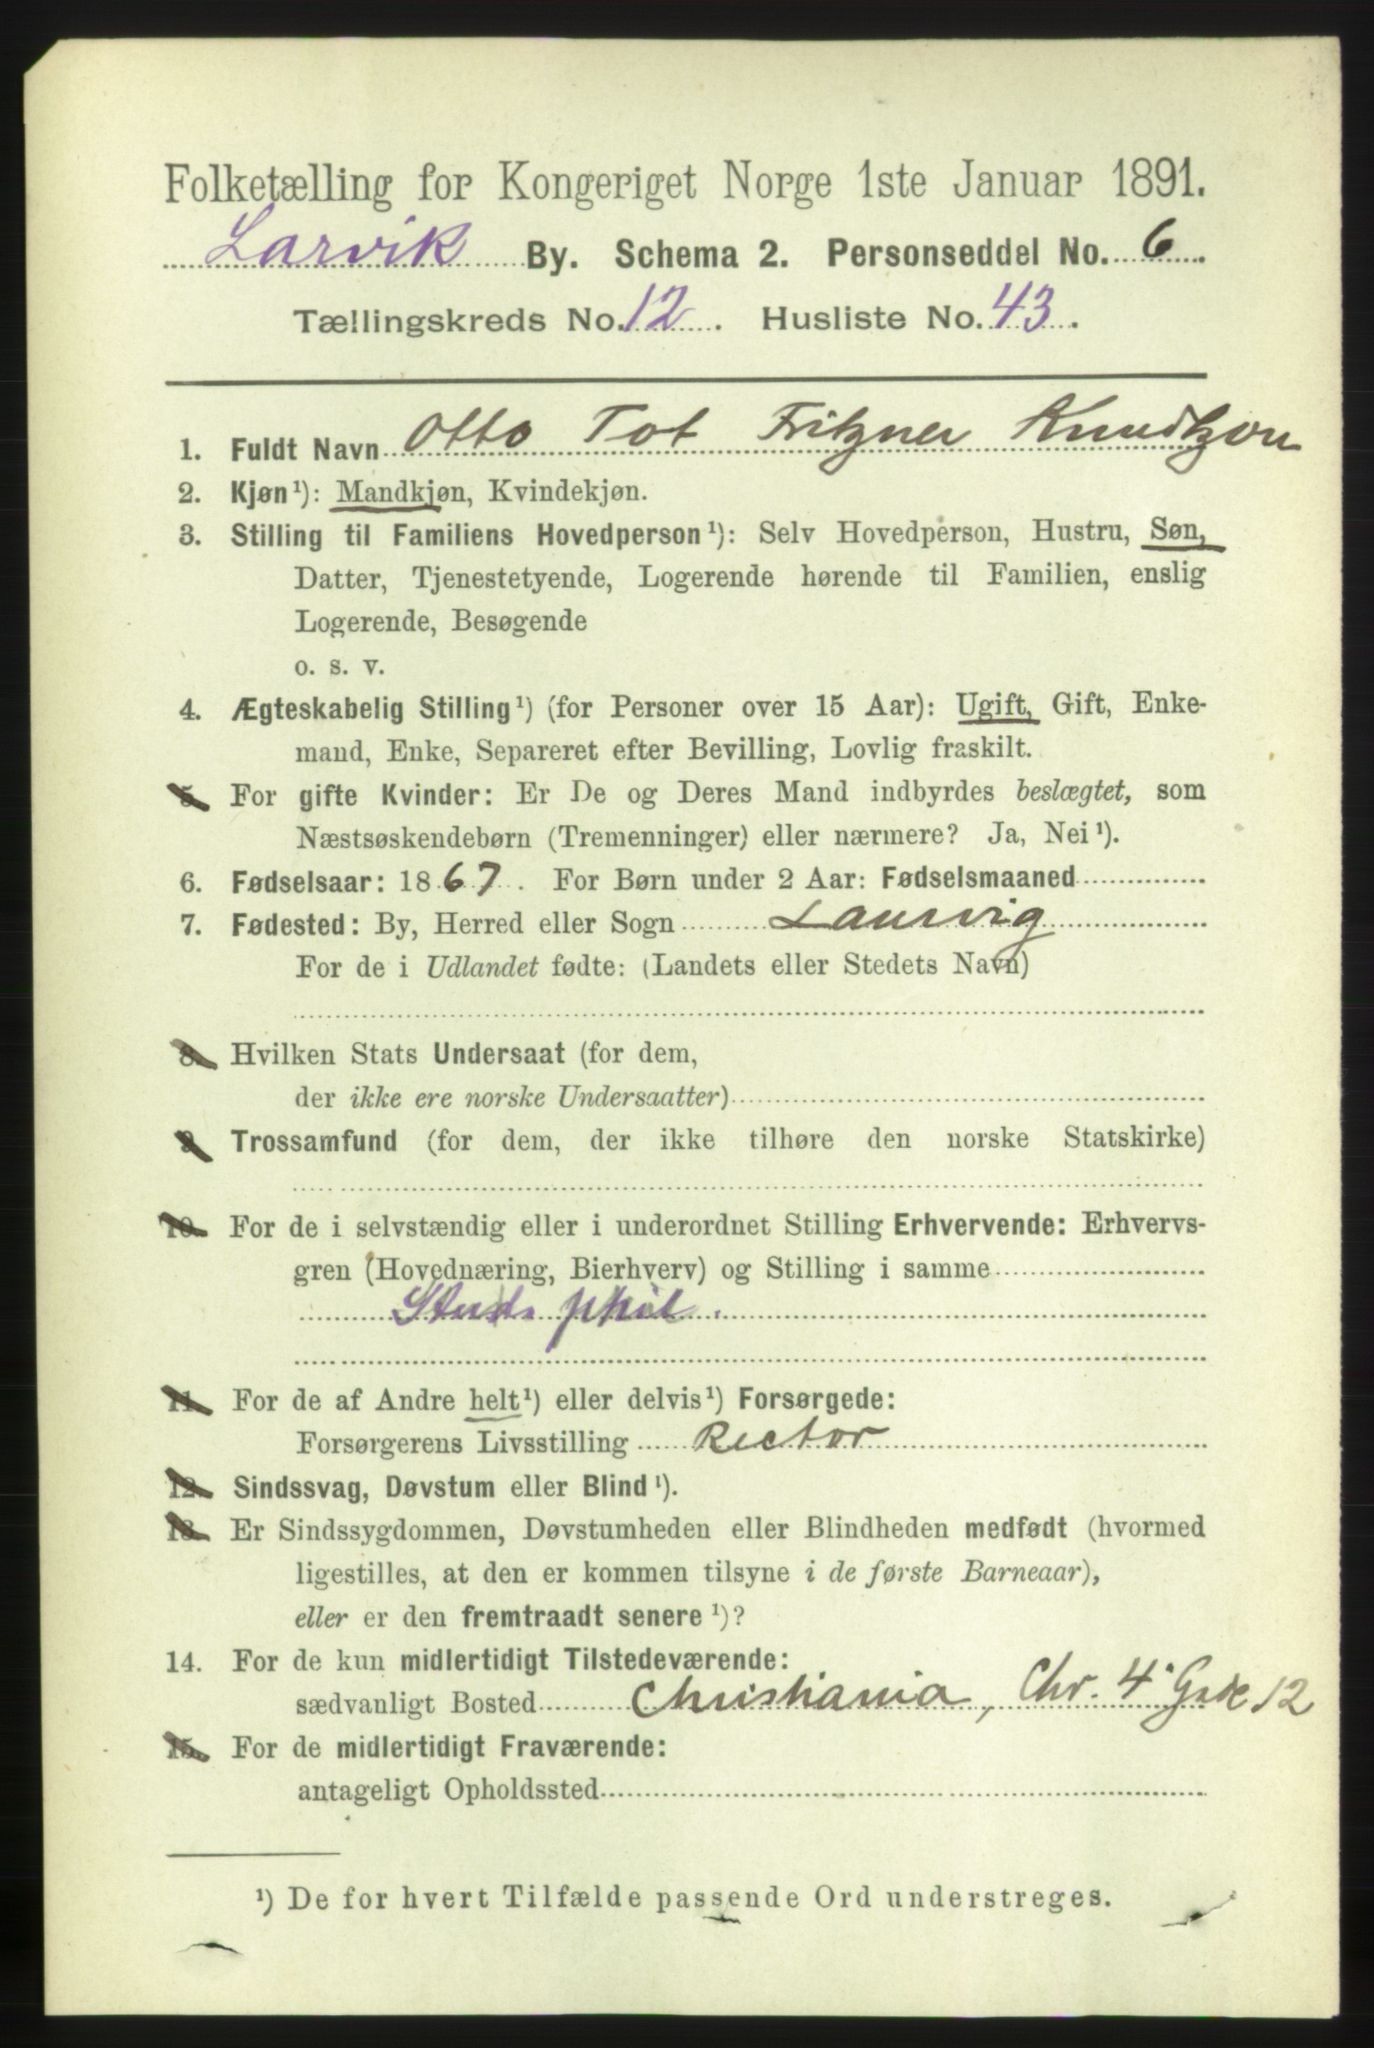 Folketælling for Kongeriget Norge 1ste Januar 1891.
Larvik By. Schema 2. Personseddel No. 6.
Tællingskreds No. 12. Husliste No. 43.
1. Fuldt Navn Otto Tot Fritzner Knudtzon
2. Kjøn¹): Mandkjøn, Kvindekjøn.
3. Stilling til Familiens Hovedperson¹): Selv Hovedperson, Hustru, Søn,
Datter, Tjenestetyende, Logerende hørende til Familien, enslig
Logerende, Besøgende
o. s. v.
4. Ægteskabelig Stilling¹) (for Personer over 15 Aar): Ugift, Gift, Enke-
mand, Enke, Separeret efter Bevilling, Lovlig fraskilt.
5. For gifte Kvinder: Er De og Deres Mand indbyrdes beslægtet, som
Næstsøskendebørn (Tremenninger) eller nærmere? Ja, Nei¹).
6. Fødselsaar: 1867. For Børn under 2 Aar: Fødselsmaaned
7. Fødested: By, Herred eller Sogn Laurvig
For de i Udlandet fødte: (Landets eller Stedets Navn)
8. Hvilken Stats Undersaat (for dem,
der ikke ere norske Undersaatter)
9. Trossamfund (for dem, der ikke tilhøre den norske Statskirke)
10. For de i selvstændig eller i underordnet Stilling Erhvervende: Erhvervs-
gren (Hovednæring, Bierhverv) og Stilling i samme
Stud. phil.
11. For de af Andre helt¹) eller delvis¹) Forsørgede:
Forsørgerens Livsstilling Rector
12. Sindssvag, Døvstum eller Blind¹).
13. Er Sindssygdommen, Døvstumheden eller Blindheden medfødt (hvormed
ligestilles, at den er kommen tilsyne i de første Barneaar),
eller er den fremtraadt senere¹)?
14. For de kun midlertidigt Tilstedeværende:
sædvanligt Bosted Christiania, Chr. 4' Gade 12
15. For de midlertidigt Fraværende:
antageligt Opholdssted
¹) De for hvert Tilfælde passende Ord understreges.